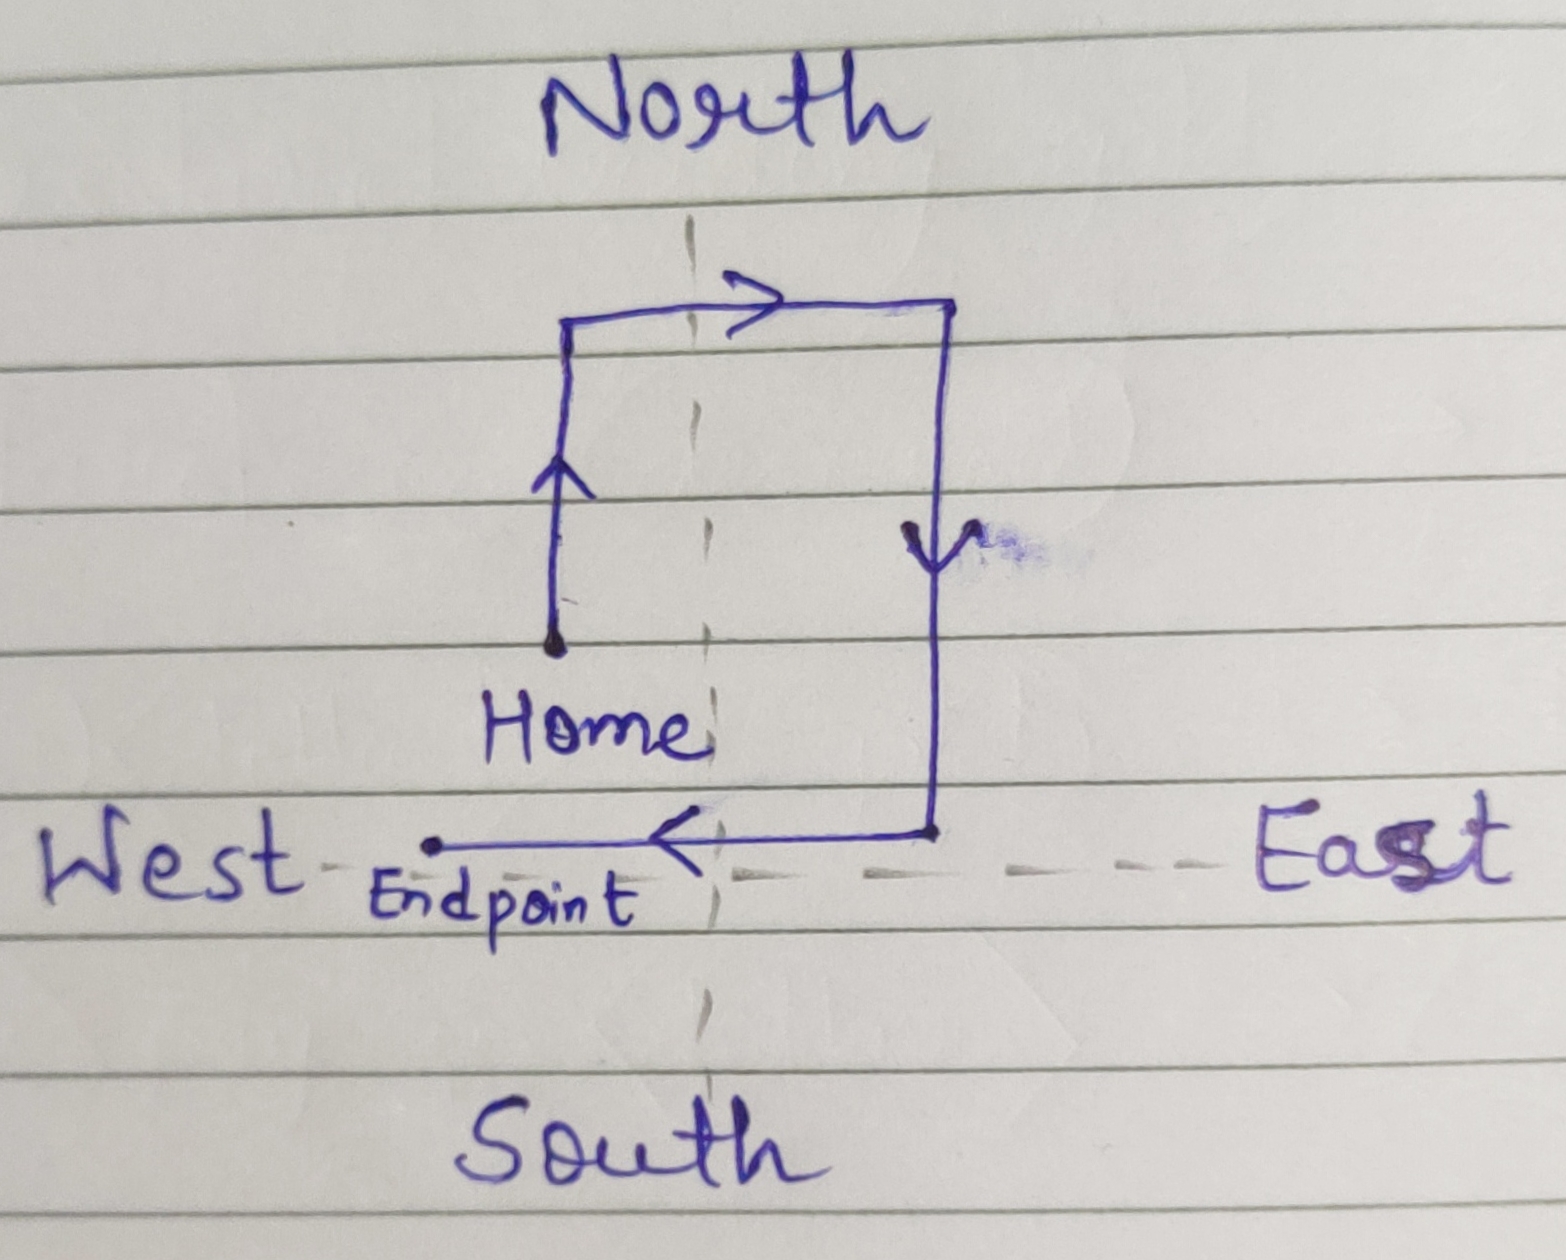 North
Home
West East
Endpoint
South